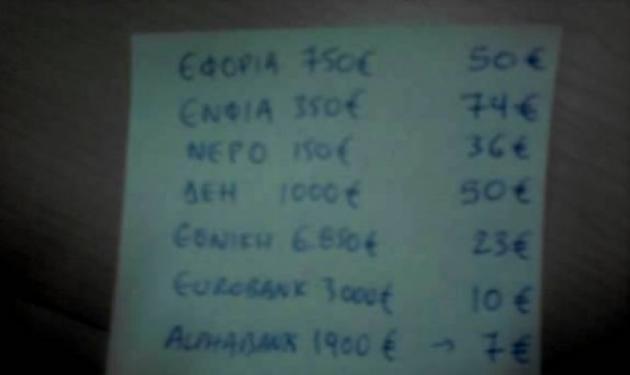 ΕΦΟΡΙΑ 750€ 50€
ΕΝΦΙΑ 350€ 74€
ΝΕΡΟ 150€ 36€
ΔΕΗ 1000€ 50€
ΕΘΝΙΚΗ 6.850€ 23€
EUROBANK 3000€ 10€
ALPHABANK 1900€ → 7€